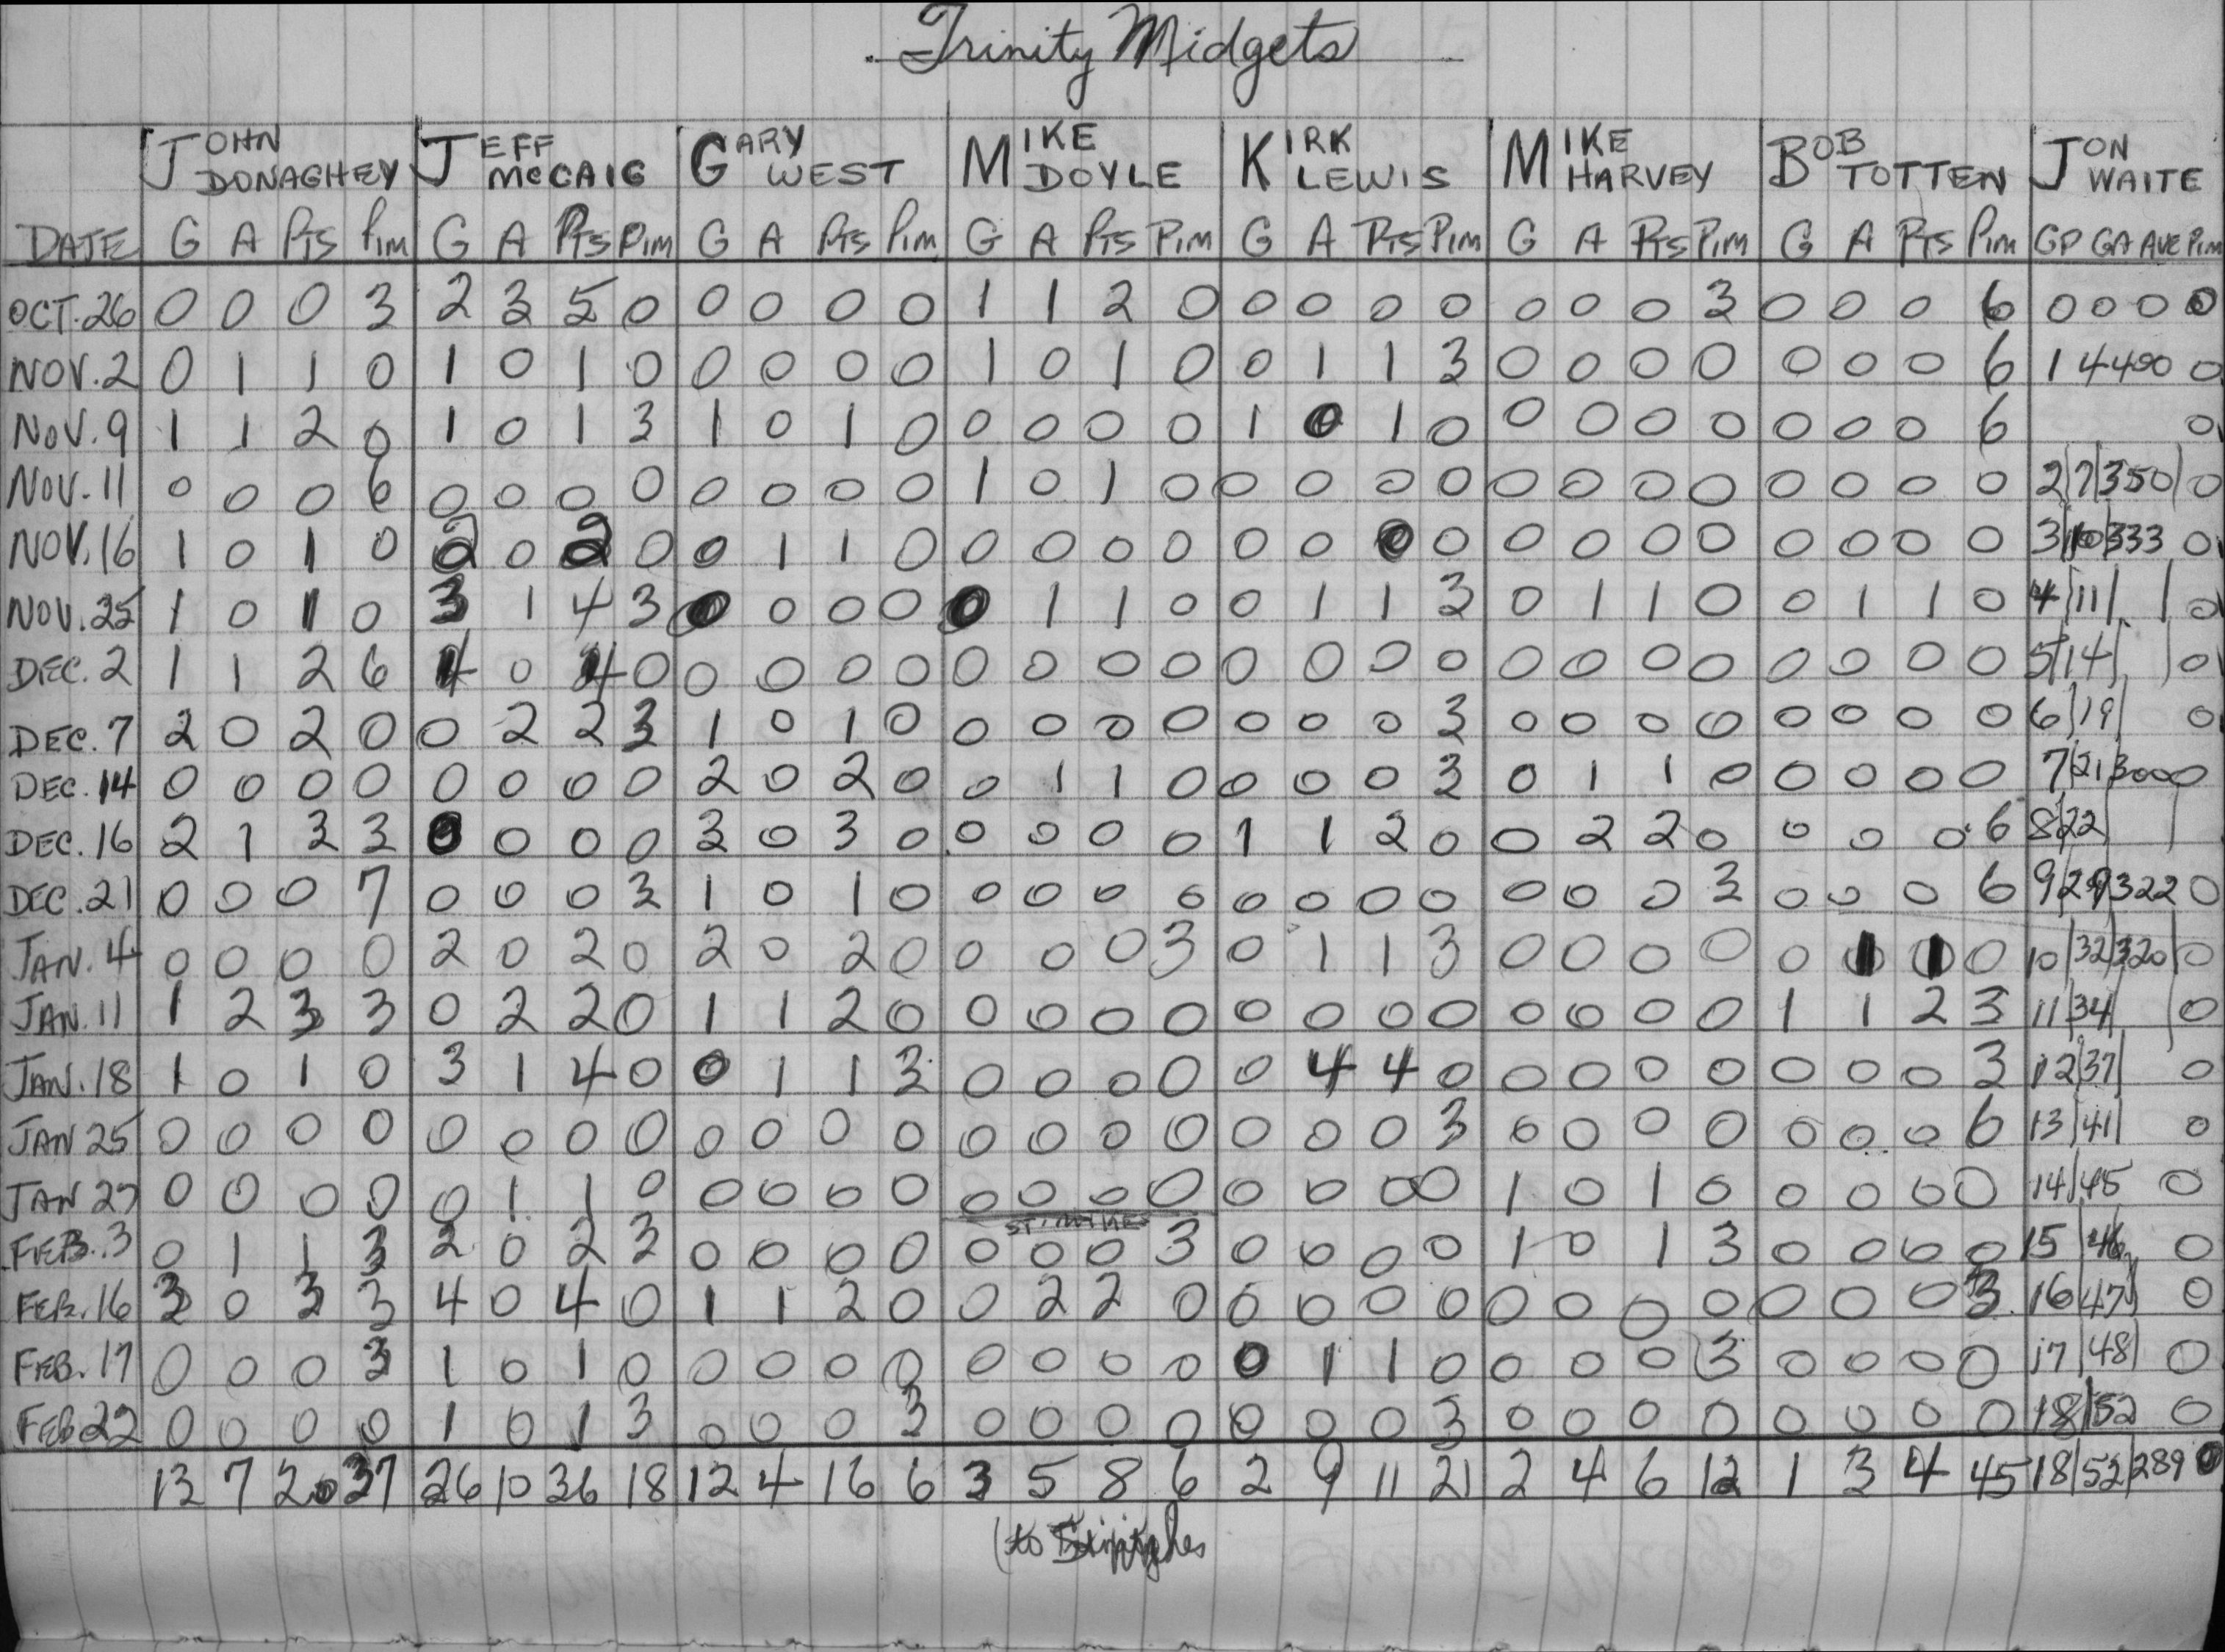 Trinity Midgets
JOHN DONAGHEY JEFF McCAIG GARY WEST MIKE DOYLE KIRK LEWIS MIKE HARVEY BOB TOTTEN JON WAITE
DATE G A PTS PIM G A PTS PIM G A PTS PIM G A PTS PIM G A PTS PIM G A PTS PIM G A PTS PIM GP GA AVE PIM
OCT. 26 0 0 0 3 2 3 5 0 0 0 0 0 1 1 2 0 0 0 0 0 0 0 0 3 0 0 0 6 0 0 0 0
NOV. 2 0 1 1 0 1 0 1 0 0 0 0 0 1 0 1 0 0 1 1 3 0 0 0 0 0 0 0 6 1 4 400 0
NOV. 9 1 1 2 0 1 0 1 3 1 0 1 0 0 0 0 0 1 0 1 0 0 0 0 0 0 0 0 6 0
NOV. 11 0 0 0 6 0 0 0 0 0 0 0 0 1 0 1 0 0 0 0 0 0 0 0 0 0 0 0 0 2 7 350 0
NOV. 16 1 0 1 0 2 0 2 0 0 1 1 0 0 0 0 0 0 0 0 0 0 0 0 0 0 0 0 0 3 10 333 0
NOV. 25 1 0 1 0 3 1 4 3 0 0 0 0 0 1 1 0 0 1 1 3 0 1 1 0 0 1 1 0 4 11 0
DEC. 2 1 1 2 6 4 0 4 0 0 0 0 0 0 0 0 0 0 0 0 0 0 0 0 0 0 0 0 0 5 14 0
DEC. 7 2 0 2 0 0 2 2 3 1 0 1 0 0 0 0 0 0 0 0 3 0 0 0 0 0 0 0 0 6 19 0
DEC. 14 0 0 0 0 0 0 0 0 2 0 2 0 0 1 1 0 0 0 0 3 0 1 1 0 0 0 0 0 7 21 300 0
DEC. 16 2 1 3 3 0 0 0 0 3 0 3 0 0 0 0 0 1 1 2 0 0 2 2 0 0 0 0 6 8 22
DEC. 21 0 0 0 7 0 0 0 3 1 0 1 0 0 0 0 0 0 0 0 0 0 0 0 3 0 0 0 6 9 29 322 0
JAN. 4 0 0 0 0 2 0 2 0 2 0 2 0 0 0 0 3 0 1 1 3 0 0 0 0 0 1 1 0 10 32 320 0
JAN. 11 1 2 3 3 0 2 2 0 1 1 2 0 0 0 0 0 0 0 0 0 0 0 0 0 1 1 2 3 11 34 0
JAN. 18 1 0 1 0 3 1 4 0 0 1 1 3 0 0 0 0 0 4 4 0 0 0 0 0 0 0 0 3 12 37 0
JAN 25 0 0 0 0 0 0 0 0 0 0 0 0 0 0 0 0 0 0 0 3 0 0 0 0 0 0 0 6 13 41 0
JAN 27 0 0 0 0 0 1 1 0 0 0 0 0 0 0 0 0 0 0 0 0 1 0 1 0 0 0 0 0 14 45 0
ST. MIKES
FEB. 3 0 1 1 3 2 0 2 3 0 0 0 0 0 0 0 3 0 0 0 0 1 0 1 3 0 0 0 0 15 46 0
FEB. 16 3 0 3 3 4 0 4 0 1 1 2 0 0 2 2 0 0 0 0 0 0 0 0 0 0 0 0 3 16 47 0
FEB. 17 0 0 0 3 1 0 1 0 0 0 0 0 0 0 0 0 0 1 1 0 0 0 0 3 0 0 0 0 17 48 0
FEB 22 0 0 0 0 1 0 1 3 0 0 0 3 0 0 0 0 0 0 0 3 0 0 0 0 0 0 0 0 18 52 0
13 7 20 37 26 10 36 18 12 4 16 6 3 5 8 6 2 9 11 21 2 4 6 12 1 3 4 45 18 52 289 0
(to